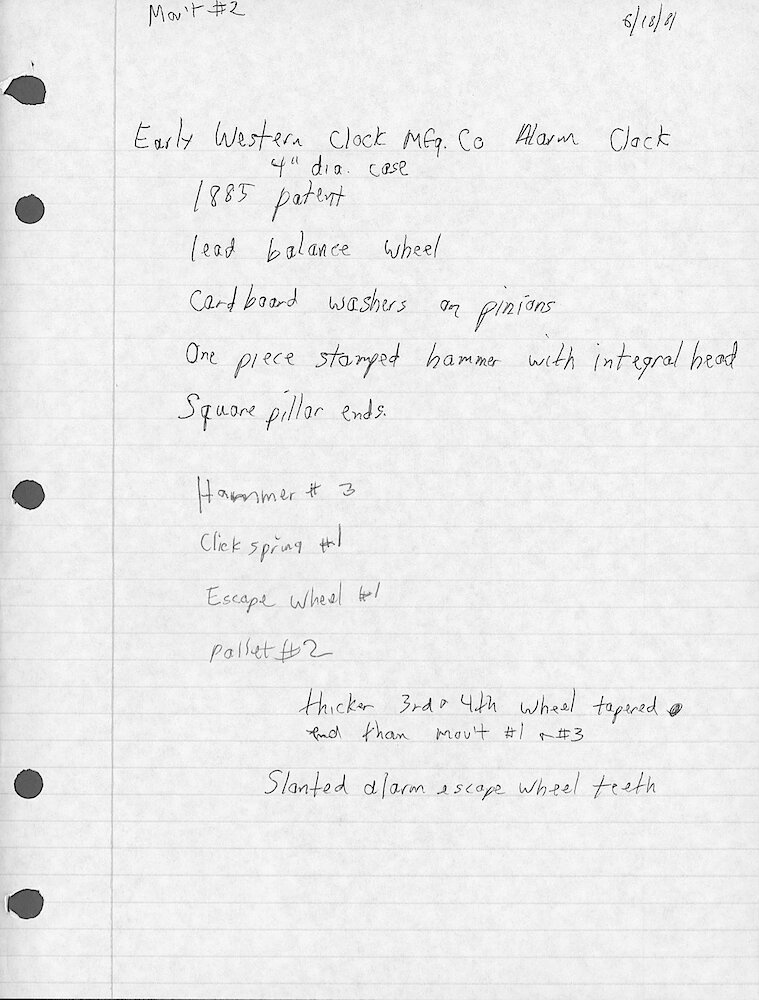 Mov't #2
6/18/81
Early Western Clock Mfg. Co Alarm Clock
4" dia. case
1885 patent
lead balance wheel
Cardboard washers on pinions
One piece stamped hammer with integral head
Square pillar ends.
Hammer # 3
Click spring #1
Escape wheel #1
pallet #2
thicker 3rd & 4th wheel tapered
end than mov't #1 & #3
Slanted alarm escape wheel teeth